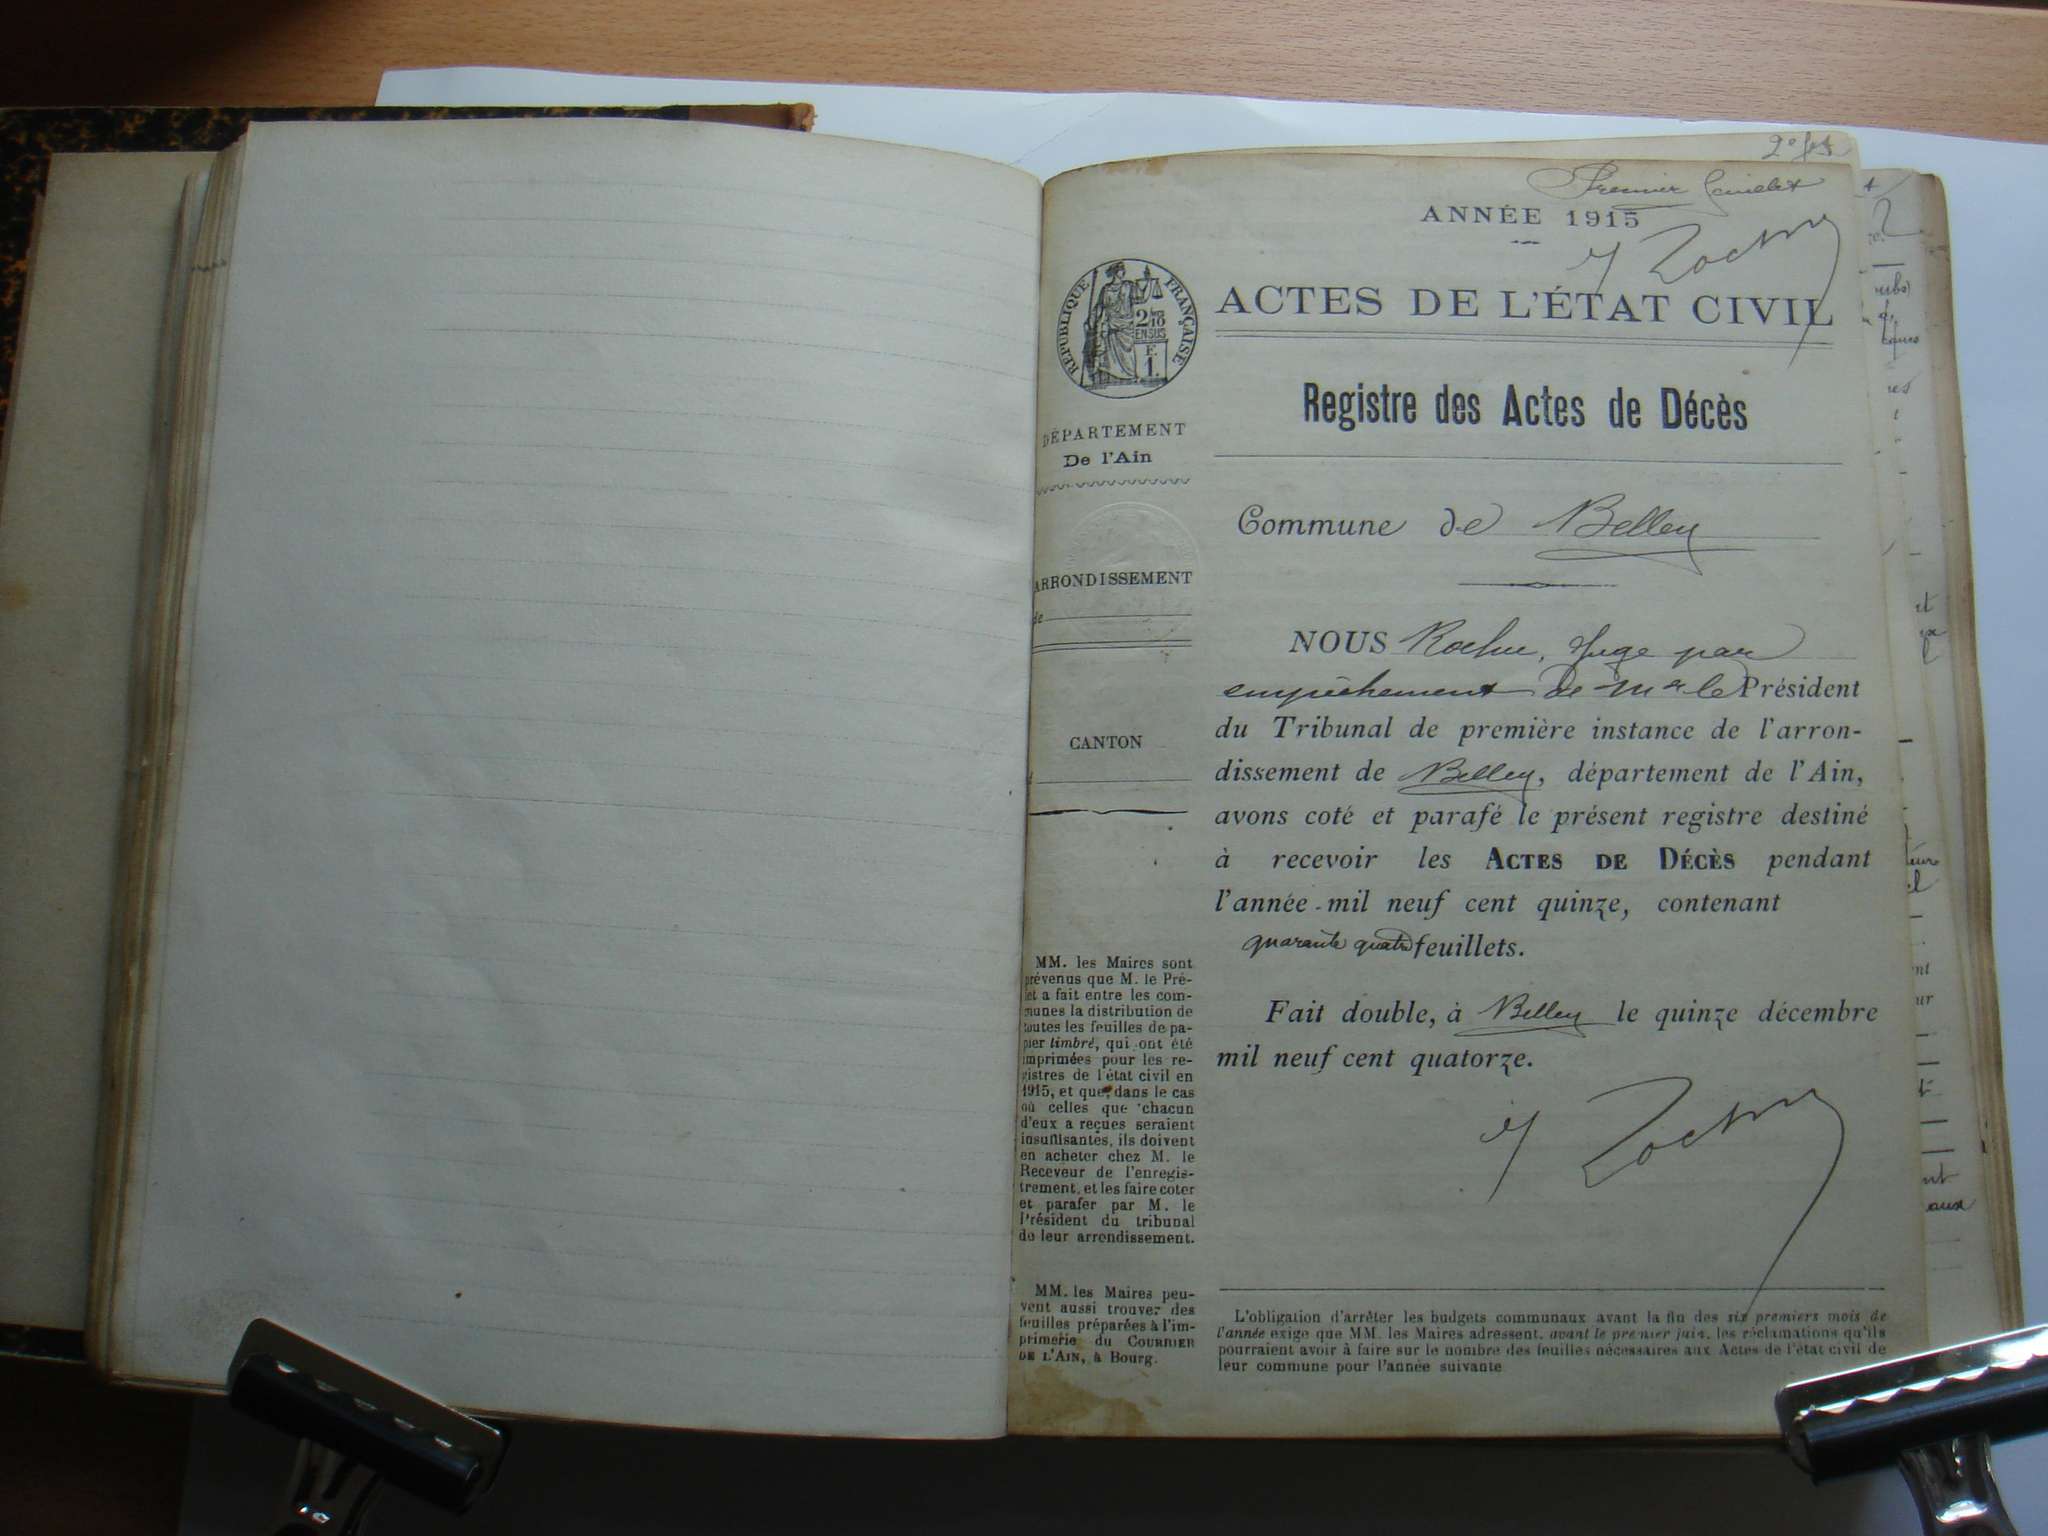 2e
Premier feuillet
ANNÉE 1915
ACTES DE L'ÉTAT CIVIL
RÉPUBLIQUE FRANÇAISE
2/10
EN SUS
F.
1.
Registre des Actes de Décès
DÉPARTEMENT
De l'Ain
Commune de Belley
ARRONDISSEMENT
de
CANTON
NOUS Juge par
empêchement de Mr le Président
du Tribunal de première instance de l'arron-
dissement de Belley, département de l'Ain,
avons coté et parafé le présent registre destiné
à recevoir les ACTES DE DÉCÈS pendant
l'année mil neuf cent quinze, contenant
quarante quatre feuillets.
Fait double, à Belley le quinze décembre
mil neuf cent quatorze.
MM. les Maires sont
prévenus que M. le Pré-
fet a fait entre les com-
munes la distribution de
toutes les feuilles de pa-
pier timbré, qui ont été
imprimées pour les re-
gistres de l'état civil en
1915, et que dans le cas
où celles que chacun
d'eux a reçues seraient
insuffisantes, ils doivent
en acheter chez M. le
Receveur de l'enregis-
trement, et les faire coter
et parafer par M. le
Président du tribunal
de leur arrondissement.
MM. les Maires peu-
vent aussi trouver des
feuilles préparées à l'im-
primerie du COURRIER
DE L'AIN, à Bourg.
L'obligation d'arrêter les budgets communaux avant la fin des six premiers mois de
l'année exige que MM. les Maires adressent, avant le premier juin, les réclamations qu'ils
pourraient avoir à faire sur le nombre des feuilles nécessaires aux Actes de l'état civil de
leur commune pour l'année suivante